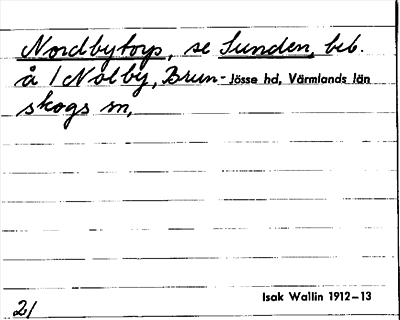 Nordbytorp, se Sunden, beb.
å 1 Nolby, Brun- Jösse hd, Värmlands län
skogs sn,
Isak Wallin 1912–13
21